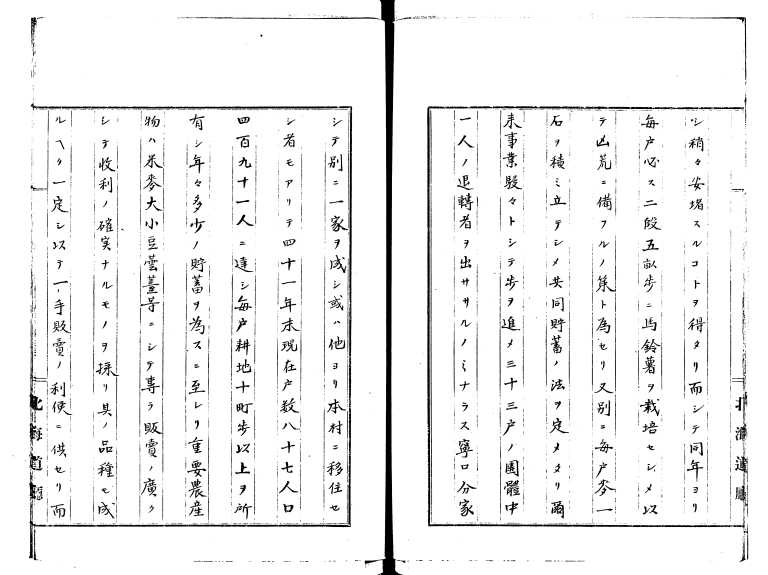 シ稍々安堵スルコトヲ得タリ而シテ同年ヨリ
毎戸必ス二段五畝歩ニ馬鈴薯ヲ栽培セシメ以
テ凶荒ニ備フルノ策ト為セリ又別ニ毎戸麥一
石ヲ積ミ立テシメ共同貯蓄ノ法ヲ定メタリ爾
来事業駸々トシテ歩ヲ進メ三十三戸ノ團體中
一人ノ退轉者ヲ出ササルノミナラス寧ロ分家
北海道廳
シテ別ニ一家ヲ成シ或ハ他ヨリ本村ニ移住セ
シ者モアリテ四十一年末現在戸数八十七人口
四百九十一人ニ達シ毎戸耕地十町歩以上ヲ所
有シ年々多少ノ貯蓄ヲ為スニ至レリ重要農産
物ハ米麥大小豆蕓薹等ニシテ専ラ販賣ノ廣ク
シテ收利ノ確実ナルモノヲ採リ其ノ品種モ成
ルヘク一定シ以テ一手販賣ノ利便ニ供セリ而
北海道廳